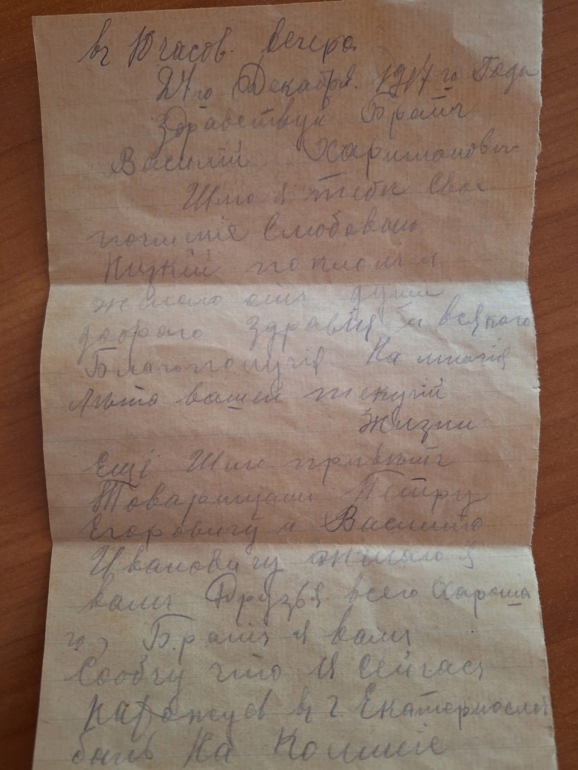 вч 10 часов. вечера
27го Декабря. 1917го Года
Здравствуй Братъ
Василий Харитонович
Шлю я тебе свое
почтенiе с любовью
Низкий поклонъ и
желаю отъ души
доброго здравiя и всякаго
Благополучiя На многiя
лѣта вашей текущiй
Жизни
Ещё Шлю привѣтъ
Товарищами Петру
Егоровичу и Василию
Ивановичу желаю я
вамъ Друзья всего Хороша
го, Братiя я вамъ
Сообчу что я сейчас
нахожусь в г Екатеринослав
быль На